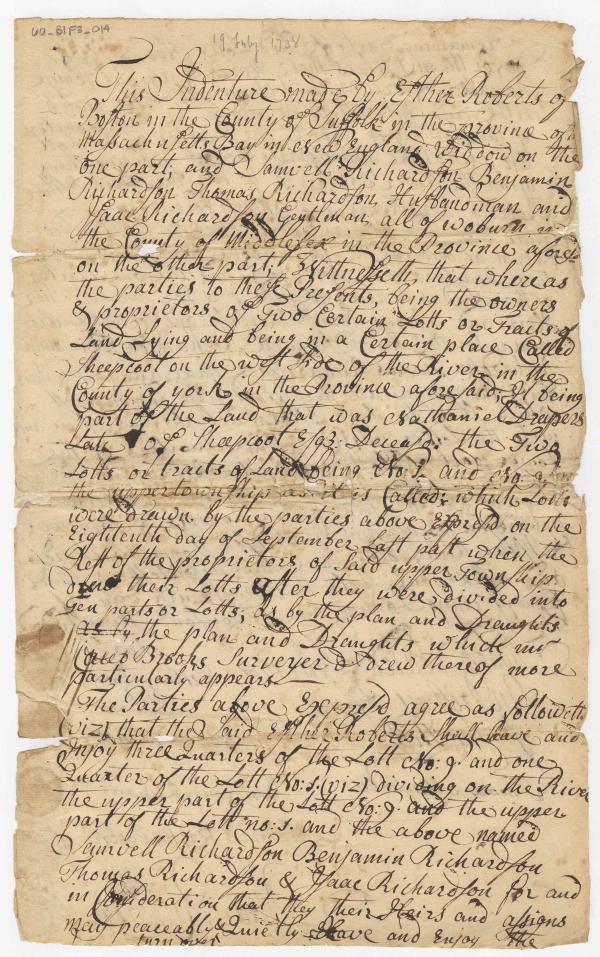 60_B1F3_014
19 July 1738
This Indenture made By Esther Roberts of
Boston in the County of Suffolk in the province of
Massachusetts Bay in New England Widdow on the
one part, and Samuell Richardson Benjamin
Richardson Thomas Richardson Husbandman and
Isaac Richardson Gentlman all of woburn in
the County of Middlesex in the Province afores:d
on the other part; Wittnesseth that where as
the parties to these Presents, being the owners
& proprietors of Two Certain Lotts or Tracts of
Land Lying and being in a Certain place Called
Sheepscoot on the west side of the River in the
County of york in the Province aforesaid; It being
part of the Land that was Nathaniel Drapers
Late of Sheepscoot Esq:r Deceasd: the Two
Lotts or tracts of Land being No: 1. and No: 9
the uppertownship as it is Called; which Lotts
were drawn by the parties above Expresd on the
Eightenth day of September Last past when the
Rest of the proprietors of Said upper Township
drew their Lotts after they were divided into
Ten parts or Lotts; as by the plan and Draughts
as by the plan and Draughts which mr
Brooks Surveyer & drew thereof more
particularly appears
The Parties above Expresd agree as followeth
(viz) that the Said Esther Roberts Shall have and
enjoy three Quarters of the Lott No: 9. and one
Quarter of the Lott No: 1. (viz) dividing on the River
the upper part of the Lott No: 9. and the upper
part of the Lott no: 1. and the above named
Samuell Richardson Benjamin Richardson
Thomas Richardson & Isaac Richardson for and
in Consideration that they their Heirs and assigns
may peaceably & Quietly Have and Enjoy the
turn over